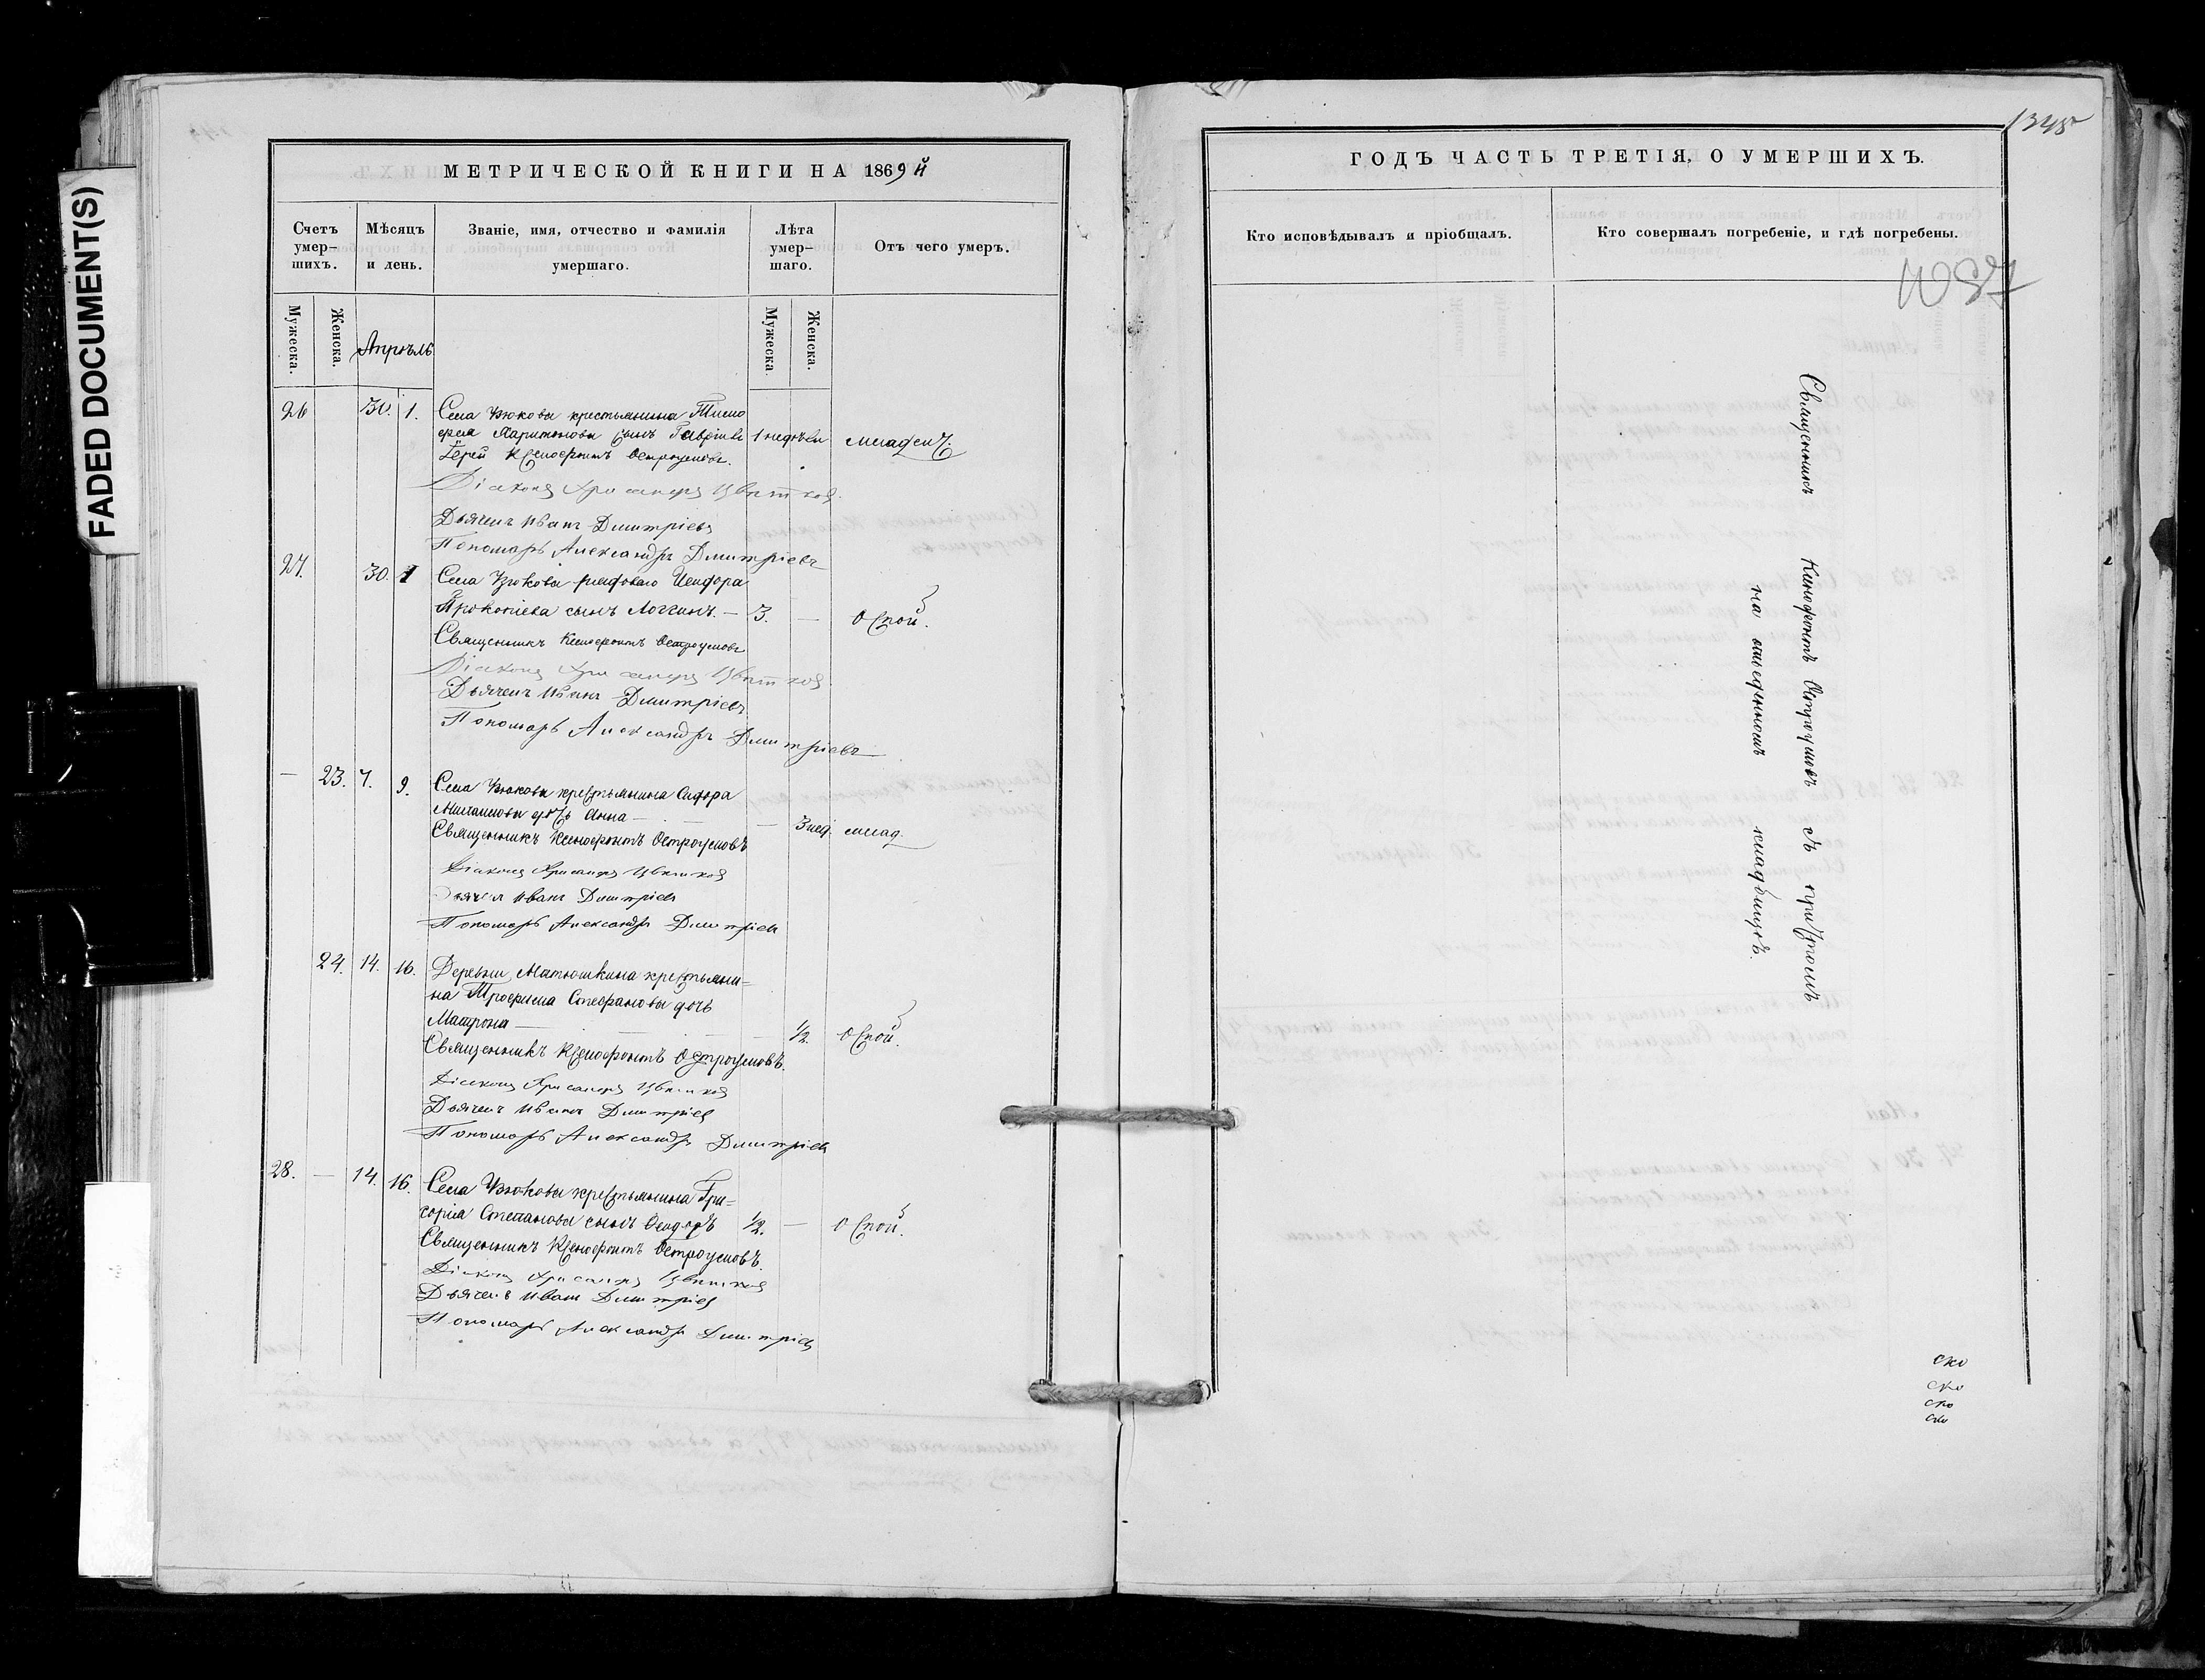 FADED DOCUMENT(S)
МЕТРИЧЕСКОЙ КНИГИ НА 1869й
Счетъ умер-шихъ.
Мѣсяцъ и день.
Званіе, имя, отчество и фамилія умершаго.
Лѣта умер-шаго.
Отъ чего умеръ.
Мужеска.
Женска.
Апрѣль
Мужеска.
Женска.
26 30. 1. Села Узюкова крестьянина Тимо
фея Харитонова сынъ Гавріилъ 1 недѣли младенч.
Іерей Ксенофонтъ Остроумовъ.
Діаконъ Хрисанфъ Цвѣтковъ
Дьячекъ Иванъ Дмитріевъ
Пономарь Александръ Дмитріевъ
27. 30. 1 Села Узюкова рядоваго Исидора
Прокопіева сынъ Логгинъ. — 3. — Оспой.
Священникъ Ксенофонтъ Остроумовъ
Діаконъ Хрисанфъ Цвѣтковъ
Дьячекъ Иванъ Дмитріевъ
Пономарь Александръ Дмитріевъ
— 23. 7. 9. Села Узюкова крестьянина Сидора
дочь Анна — — 3 нед. млад.
Священникъ Ксенофонтъ Остроумовъ
Діаконъ Хрисанфъ Цвѣтковъ
Дьячекъ Иванъ Дмитріевъ
Пономарь Александръ Дмитріевъ
24. 14. 16. Деревни Матюшкина крестьяни-
на Трофима Стефанова дочь
Матрона — — ½ Оспой.
Священникъ Ксенофонтъ Остроумовъ.
Діаконъ Хрисанфъ Цвѣтковъ
Дьячекъ Иванъ Дмитріевъ
Пономарь Александръ Дмитріевъ
28. — 14. 16. Села Узюкова крестьянина Гри-
горія Степанова сынъ Ѳеодоръ ½. — Оспой.
Священникъ Ксенофонтъ Остроумовъ.
Діаконъ Хрисанфъ Цвѣтковъ
Дьячекъ Иванъ Дмитріевъ
Пономарь Александръ Дмитріевъ
1345
ГОДЪ ЧАСТЬ ТРЕТІЯ, О УМЕРШИХЪ.
Кто исповѣдывалъ и пріобщалъ.
Кто совершалъ погребеніе, и гдѣ погребены.
Священникъ Ксенофонтъ Остроумовъ съ причтомъ
на отведенномъ кладбищѣ.